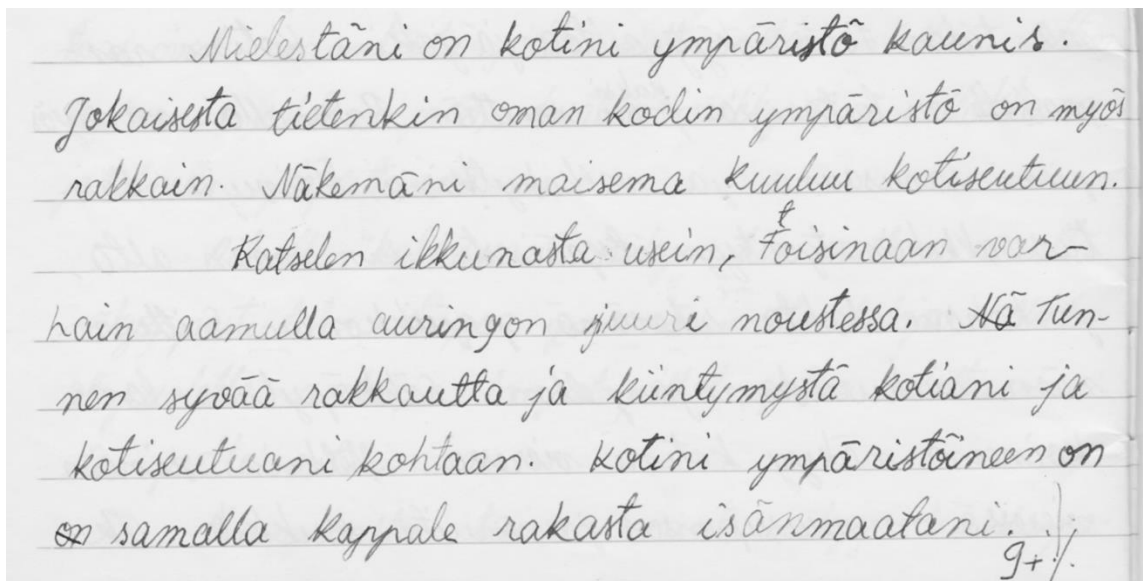 Mielestäni on kotini ympäristö kaunis.
Jokaisesta tietenkin oman kodin ympäristö on myös
rakkain. Näkemäni maisema kuuluu kotiseutuun.
Katselen ikkunasta usein, toisinaan var-
hain aamulla auringon juuri noustessa. Nä Tun-
nen syvää rakkautta ja kiintymystä kotiani ja
kotiseutuani kohtaan. Kotini ympäristöineen on
on samalla kappale rakasta isänmaatani.
9+ ·/.